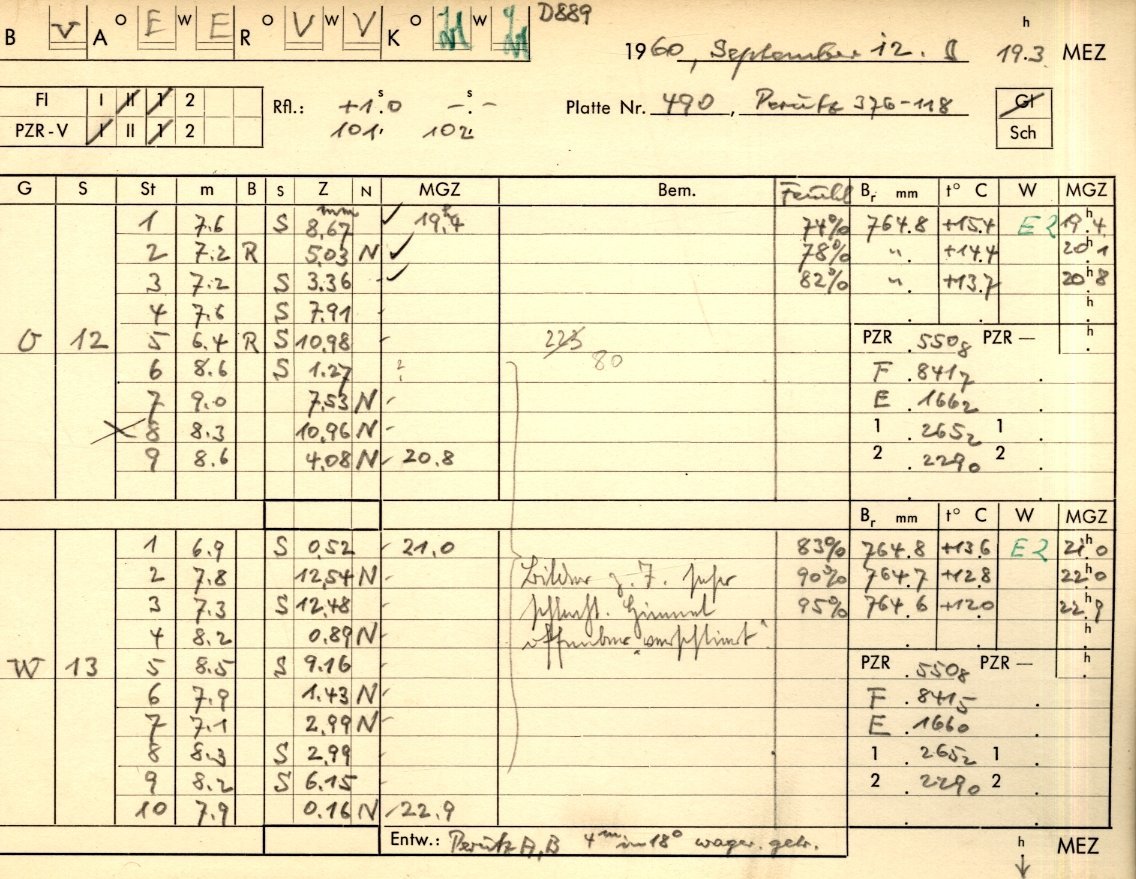 B V A O E W E R O V W V K O W D889
h
1960, September 12. 19.3 MEZ
FI I II 1 2
PZR-V I II 1 2
Rfl.: +1.ˢ0 -.ˢ-
101. 102.
Platte Nr. 490, Perutz 376-118
Gl
Sch
G S St m B S Z N MGZ Bem. Feucht Bᵣ mm t° C W MGZ
mm
1 7.6 S 8.67 ✓ 19ʰ.4 74% 764.8 +15.4 E2 19ʰ.4
2 7.2 R 5.03 N ✓ 78% " +14.4 20ʰ.1
3 7.2 S 3.36 ✓ 82% " +13.7 20ʰ.8
4 7.6 S 7.91 h
O 12 5 6.4 R S 10.98 225 PZR .5508 PZR — h
6 8.6 S 1.27 ? 80 F .8417
7 9.0 7.53 N E .1662
8 8.3 10.96 N 1 .2652 1
9 8.6 4.08 N 20.8 2 .2290 2
Bᵣ mm t° C W MGZ
1 6.9 S 0.52 21.0 83% 764.8 +13.6 E2 21ʰ.0
2 7.8 12.54 N Bilder z. T. sehr 90% 764.7 +12.8 22ʰ.0
3 7.3 S 12.48 schlecht. Himmel 95% 764.6 +12.0 22ʰ.9
4 8.2 0.89 N offenbar "verschliert". h
W 13 5 8.5 S 9.16 PZR .5508 PZR — h
6 7.9 1.43 N F .8415
7 7.1 2.99 N E .1660
8 8.3 S 2.99 1 .2652 1
9 8.2 S 6.15 2 .2290 2
10 7.9 0.16 N 22.9
Entw.: Perutz A, B 4ᵐ in 18° wager. getr. h MEZ